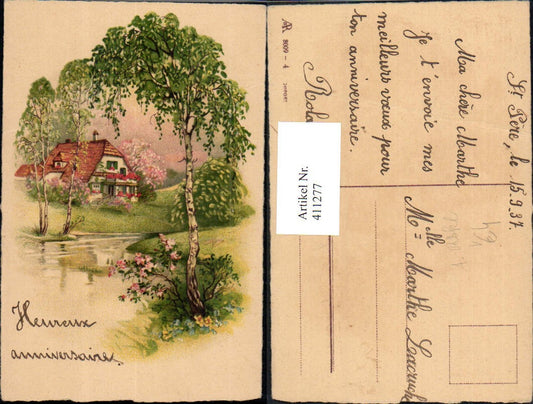 Heureux
anniversaire.
AR
8009 - 4
IMPORT
St Père, le 15.9.37.
Ma chère Marthe
Je t'envoie mes
meilleurs vœux pour
ton anniversaire.
Artikel Nr.
411277
Mlle Marthe